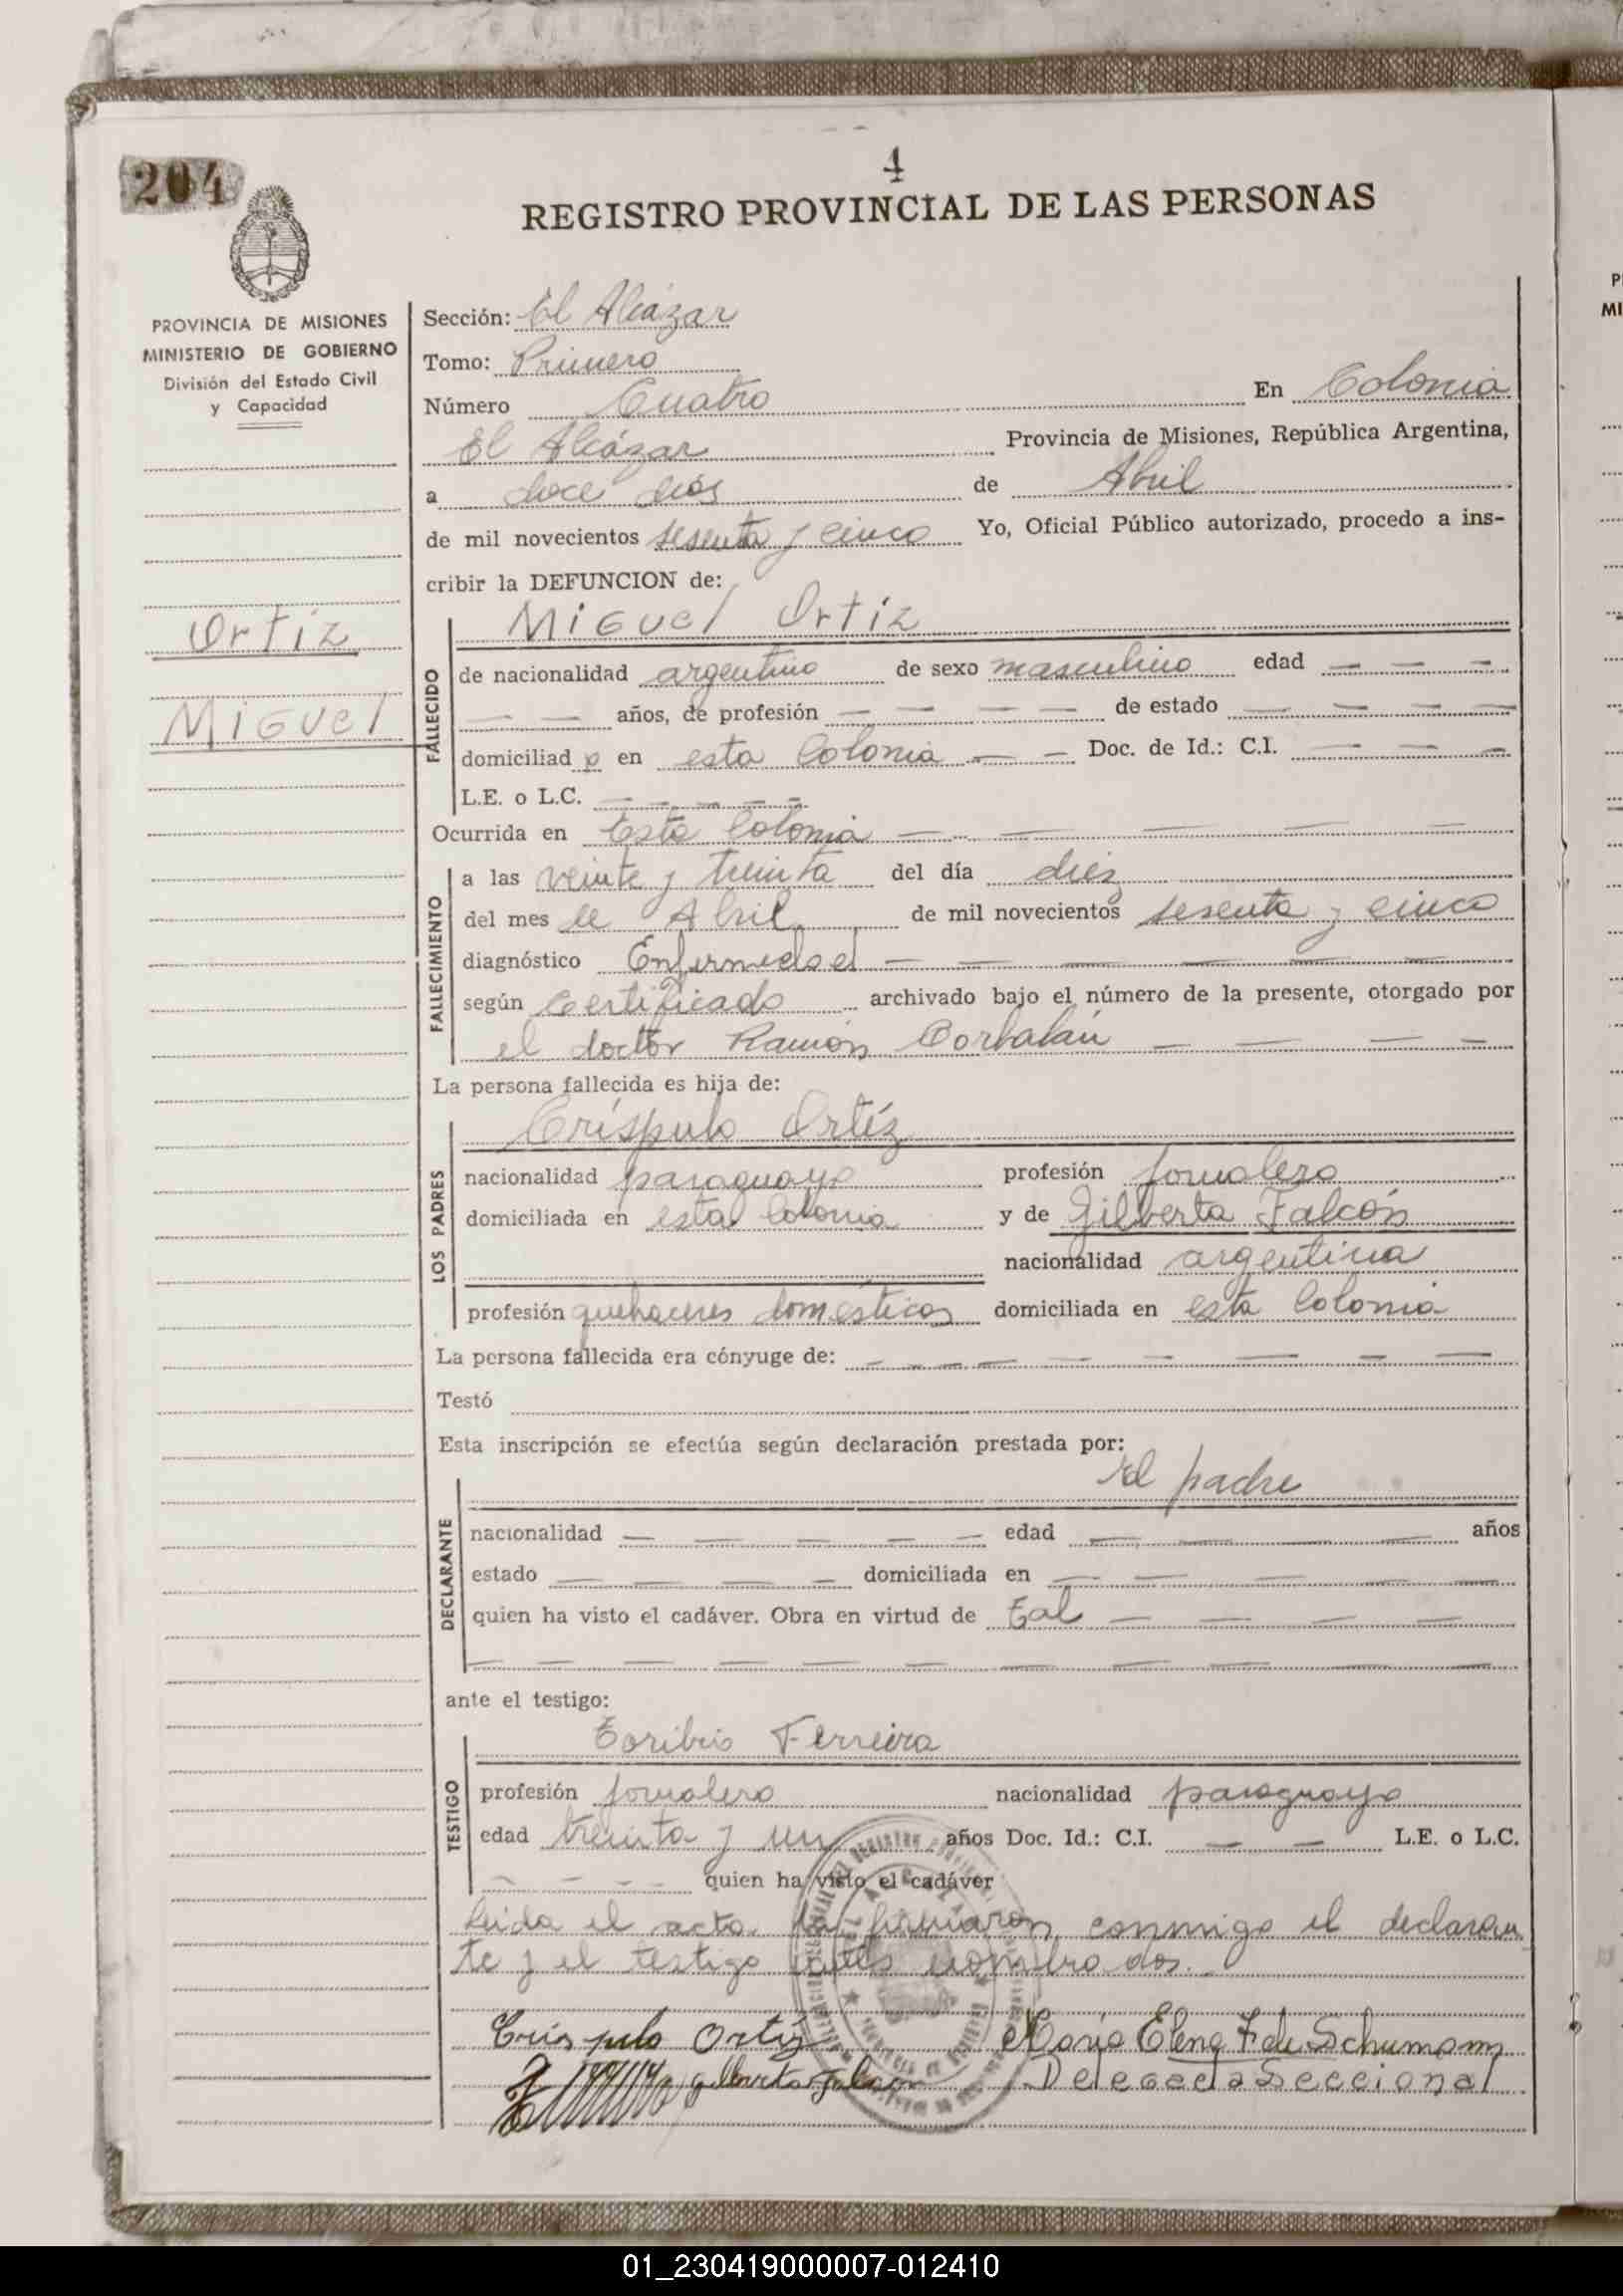 204
4
REGISTRO PROVINCIAL DE LAS PERSONAS
PROVINCIA DE MISIONES
MINISTERIO DE GOBIERNO
División del Estado Civil
y Capacidad
Ortíz
MIGUEl
Sección: El Alcázar
Tomo: Primero
Número Cuatro En Colonia
El Alcázar Provincia de Misiones, República Argentina,
a doce días de Abril
de mil novecientos sesenta y cinco Yo, Oficial Público autorizado, procedo a ins-
cribir la DEFUNCION de:
FALLECIDO
MIGUEl Ortíz
de nacionalidad argentino de sexo masculino edad — — —
— — años, de profesión — — — — de estado — — — —
domiciliad o en esta Colonia — — Doc. de Id.: C.I. — — —
L.E. o L.C. — — — — —
Ocurrida en Esta Colonia — — — — —
FALLECIMIENTO
a las veinte y treinta del día diez
del mes de Abril de mil novecientos sesenta y cinco
diagnóstico Enfermedad — — — — — —
según Certificado archivado bajo el número de la presente, otorgado por
el doctor Ramón Corbalán — — — —
La persona fallecida es hija de:
LOS PADRES
Críspulo Ortíz
nacionalidad paraguayo profesión jornalero
domiciliada en esta Colonia y de Gilberta Falcón
nacionalidad argentina
profesión quehaceres domésticos domiciliada en esta Colonia
La persona fallecida era cónyuge de: — — — — — — — — —
Testó
Esta inscripción se efectúa según declaración prestada por:
DECLARANTE
el padre
nacionalidad — — — — — edad — — — — años
estado — — — — domiciliada en — — — — — —
quien ha visto el cadáver. Obra en virtud de Tal — — — —
— — — — — — — — — — — —
ante el testigo:
TESTIGO
Toribio Ferreira
profesión jornalero nacionalidad paraguayo
edad treinta y un años Doc. Id.: C.I. — — L.E. o L.C.
— — — — quien ha visto el cadáver
Leida el acta la firmaron conmigo el declaran
te y el testigo antes nombrados.
Críspulo Ortíz María Elena F. de Schumann
Gilberta Falcon Delegada Seccional
01_230419000007-012410